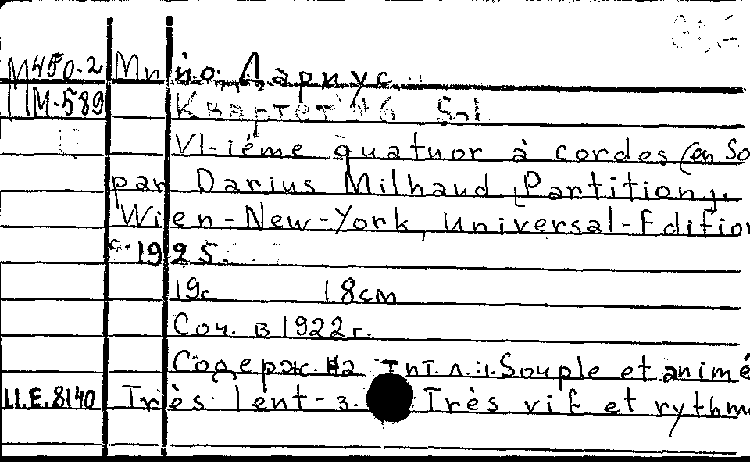 М450.2 Мийо, Дариус.
М-589 Квартет №6 Sol
VI-ième quatuor à cordes (en So
par Darius Milhaud [Partition].
Wien-New-York, Universal-Edition
c. 1925.
19с 18см
Соч. в 1922г.
Содерж. на тит.л.: 1. Souple et animé
Ц.Е.8140 Très lent-3. Très vif et rythm